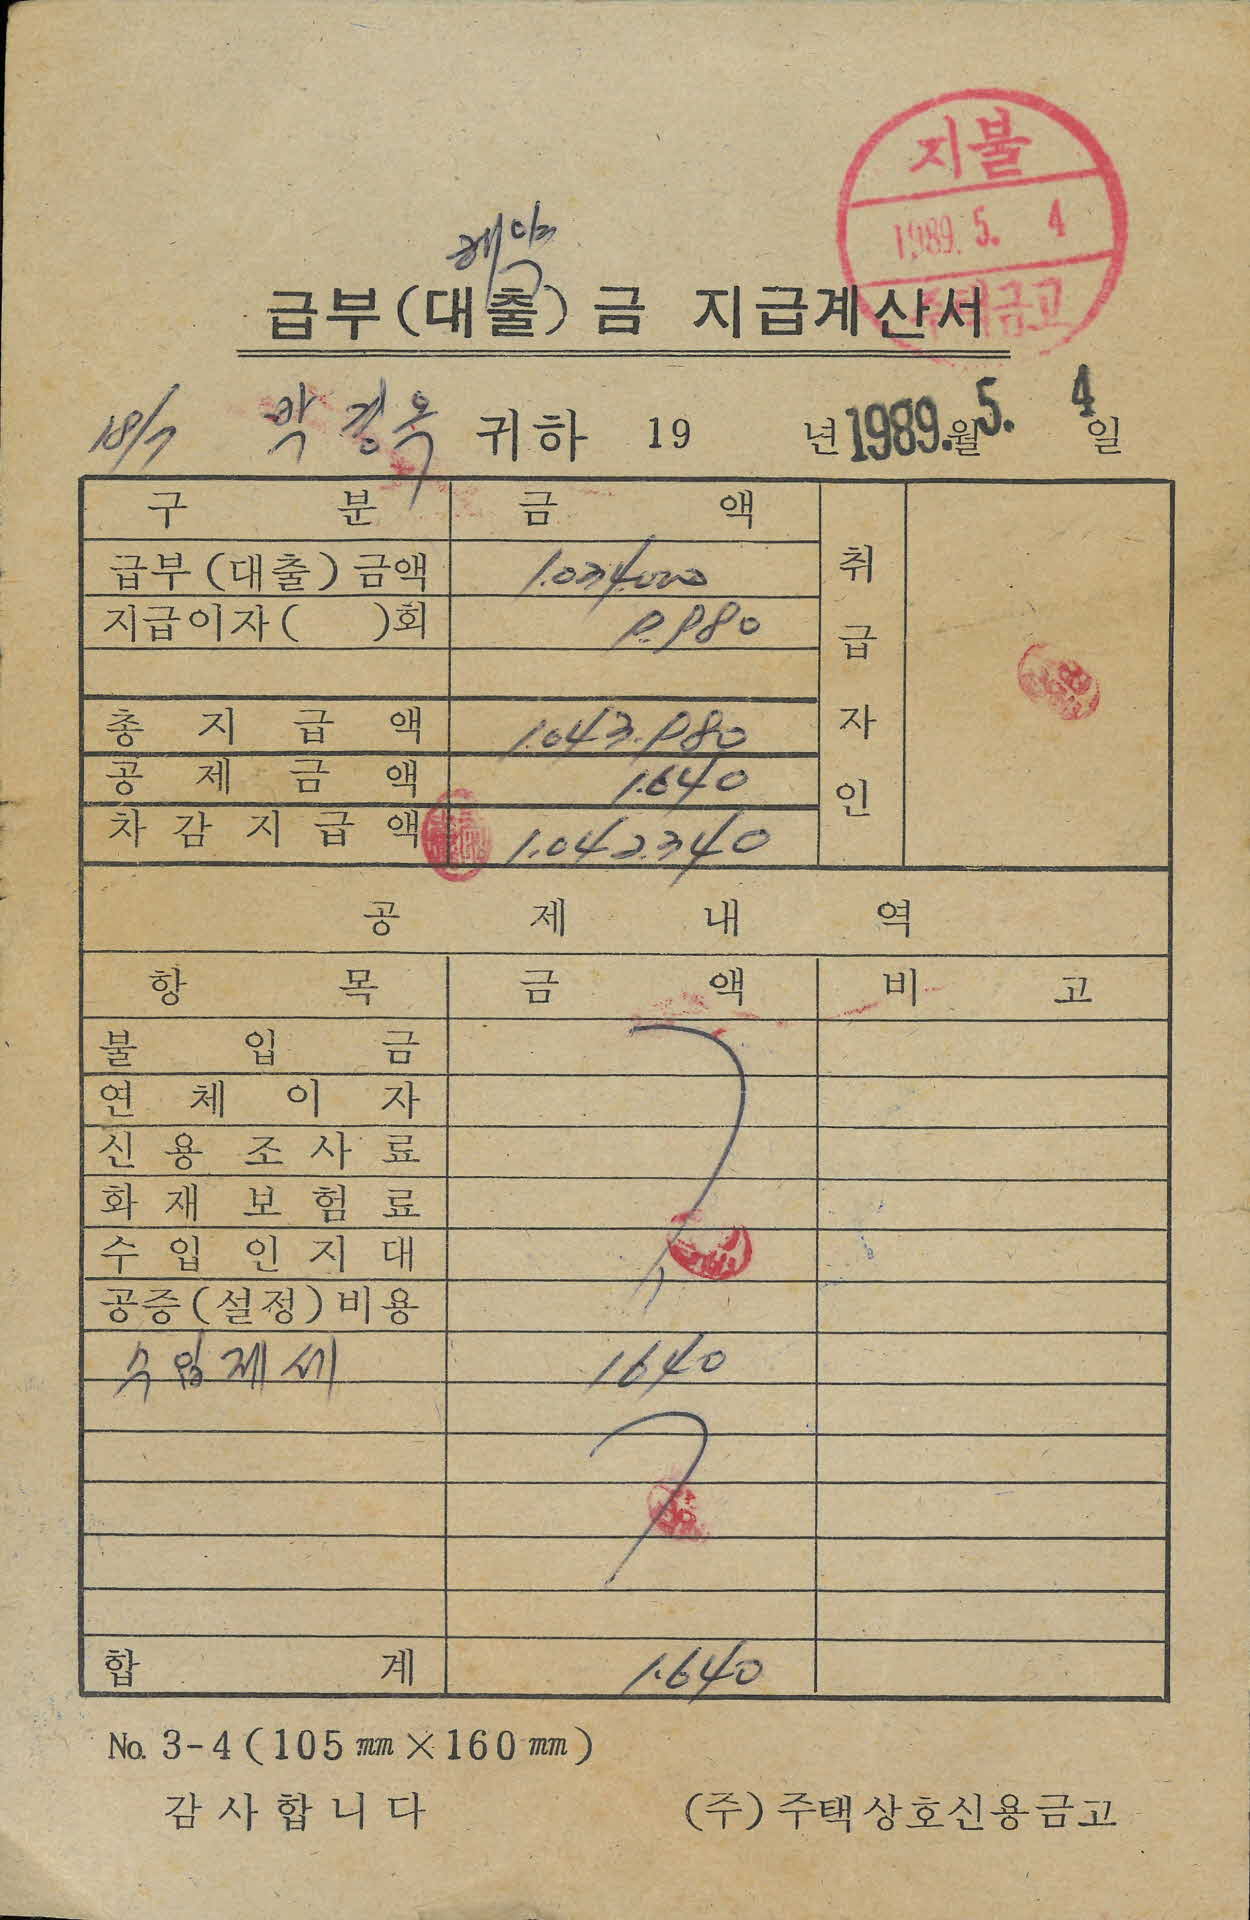 지불
1989. 5. 4
주택금고
해약
급부(대출)금 지급계산서
18/7 박경옥 귀하 19 년 1989. 월 5. 4 일
구분 금액 취급자인
급부(대출)금액 1.034.000
지급이자( )회 9.980
총지급액 1.043.980
공제금액 1.640
차감지급액 1.042.340
공제내역
항목 금액 비고
불입금
연체이자
신용조사료
화재보험료
수입인지대
공증(설정)비용
수입제세 1640
합계 1.640
No. 3-4(105㎜×160㎜)
감사합니다 (주)주택상호신용금고